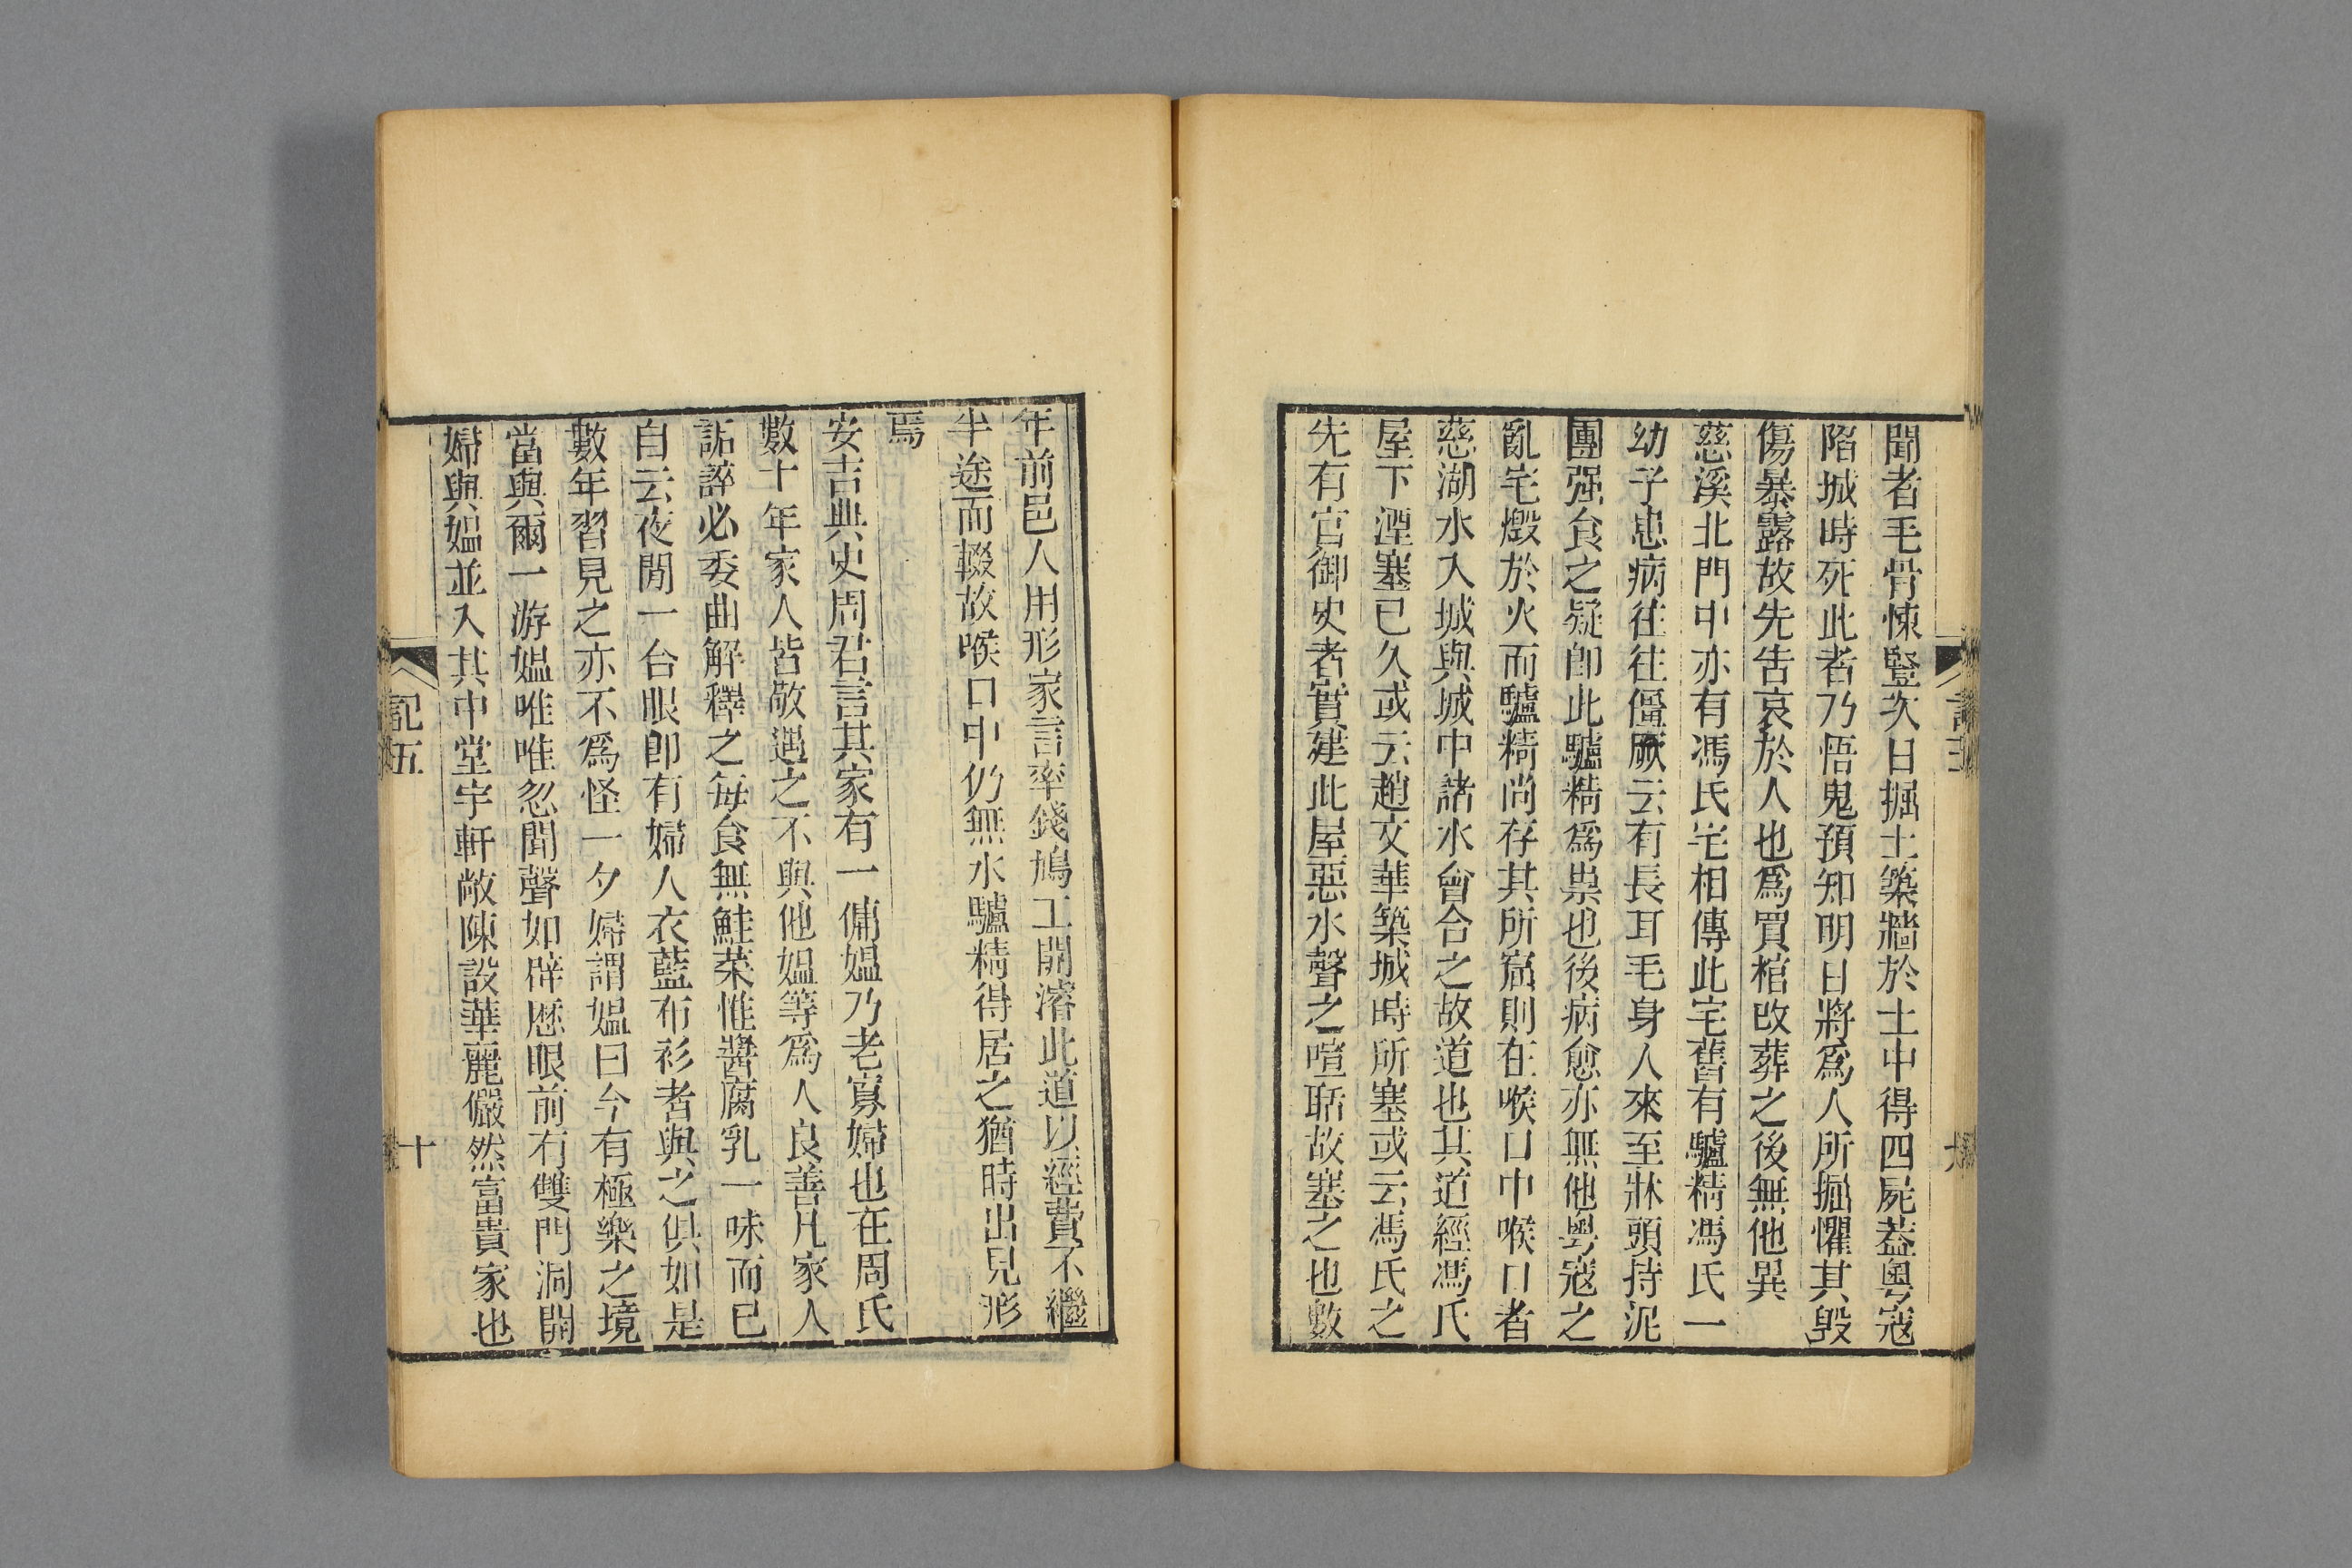 聞者毛骨悚豎次日掘土築牆於土中得四屍蓋粵寇
陷城時死此者乃悟鬼預知明日將爲人所掘懼其毀
傷暴露故先告哀於人也爲買棺改葬之後無他異
慈溪北門中亦有馮氏宅相傳此宅舊有驢精馮氏一
幼子患病往往僵厥云有長耳毛身人來至牀頭持泥
團强食之疑卽此驢精爲祟也後病愈亦無他粵寇之
亂宅燬於火而驢精尚存其所窟則在喉口中喉口者
慈湖水入城與城中諸水會合之故道也其道經馮氏
屋下湮塞已久或云趙文華築城時所塞或云馮氏之
先有官御史者實建此屋惡水聲之喧聒故塞之也數
年前邑人用形家言率錢鳩工開濬此道以經費不繼
半途而輟故喉口中仍無水驢精得居之猶時出見形
焉
安吉典史周君言其家有一傭媼乃老寡婦也在周氏
數十年家人皆敬遇之不與他媼等爲人良善凡家人
詬誶必委曲解釋之每食無鮭菜惟醬腐乳一味而已
自云夜閒一合眼卽有婦人衣藍布衫者與之俱如是
數年習見之亦不爲怪一夕婦謂媼曰今有極樂之境
當與爾一游媼唯唯忽聞聲如辟歷眼前有雙門洞開
婦與媼並入其中堂宇軒敞陳設華麗儼然富貴家也
記五
十